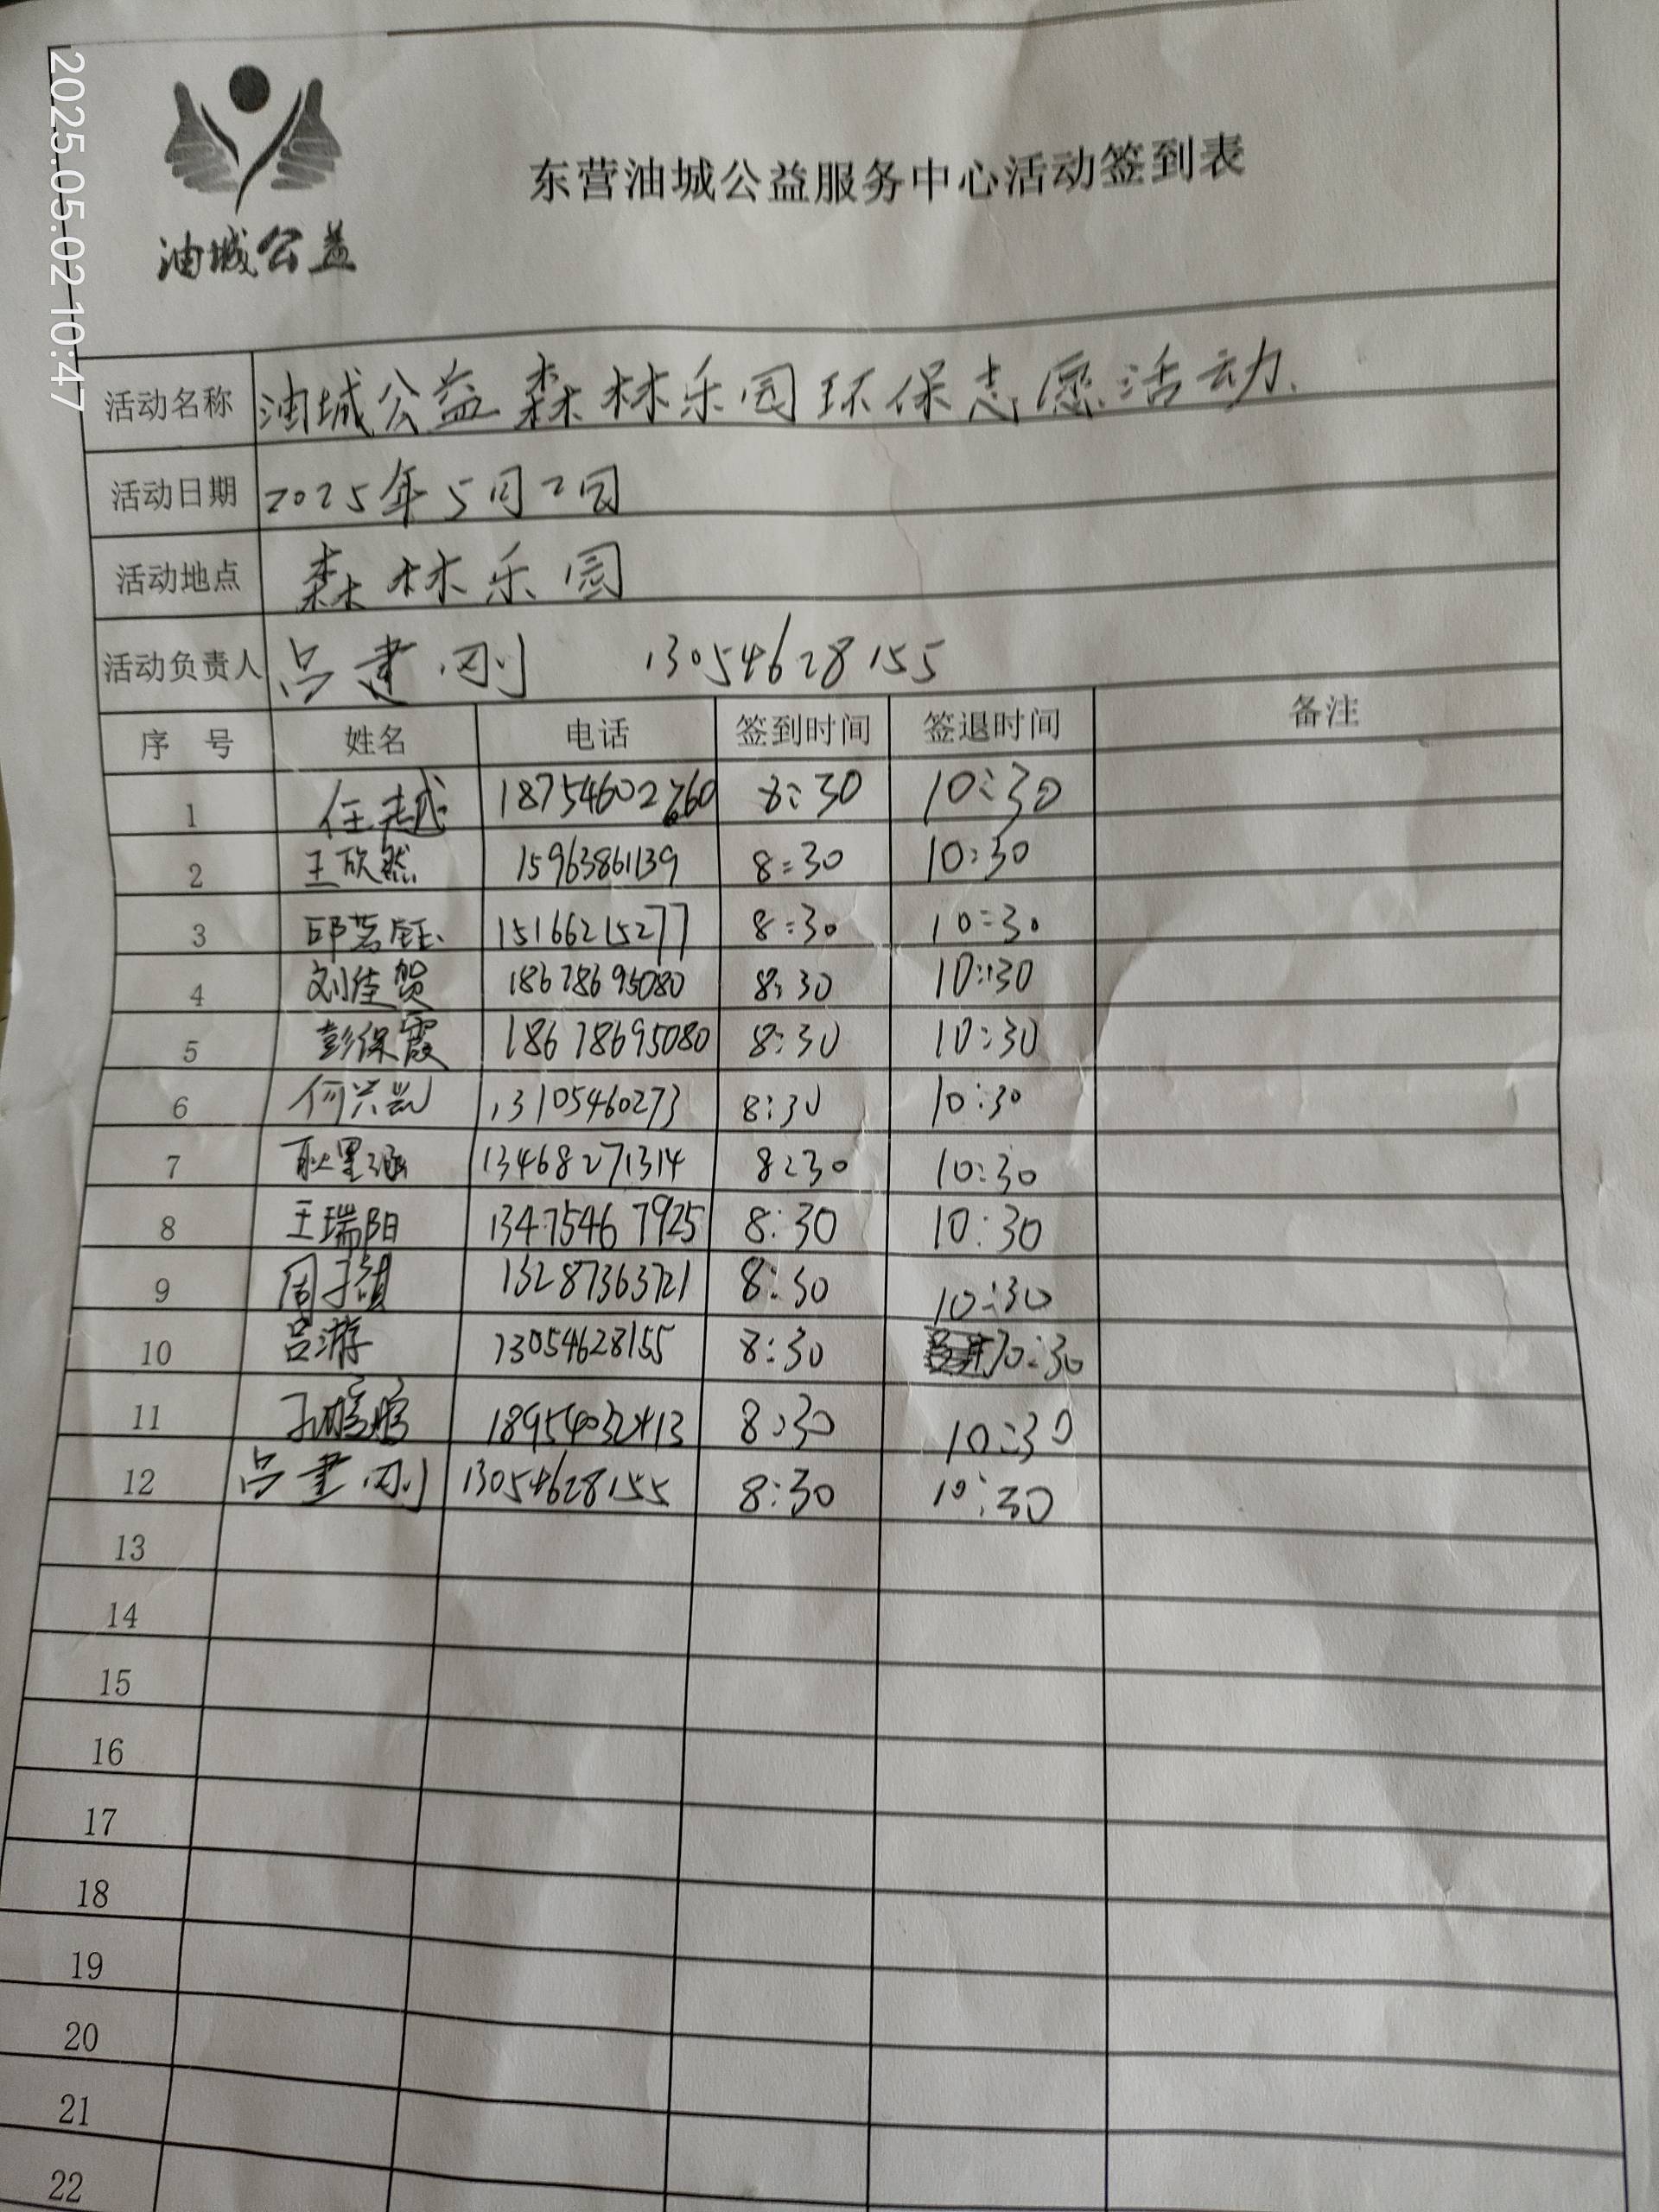 2025.05.02 10:47
油城公益
东营油城公益服务中心活动签到表
活动名称 油城公益森林乐园环保志愿活动.
活动日期 2025年5月2日
活动地点 森林乐园
活动负责人 吕建刚 13054628155
序号 姓名 电话 签到时间 签退时间 备注
1 任越 8:30 10:30
2 王欣然 15963861139 8:30 10:30
3 邱茗钰 15166215277 8:30 10:30
4 刘佳贺 18678695080 8:30 10:30
5 彭保霞 18678695080 8:30 10:30
6 何兴凯 13105460273 8:30 10:30
7 13468271314 8:30 10:30
8 王瑞阳 13475467925 8:30 10:30
9 周子 13287363721 8:30 10:30
10 吕游 13054628155 8:30 10:30
11 8:30 10:30
12 吕建刚 13054628155 8:30 10:30
13
14
15
16
17
18
19
20
21
22